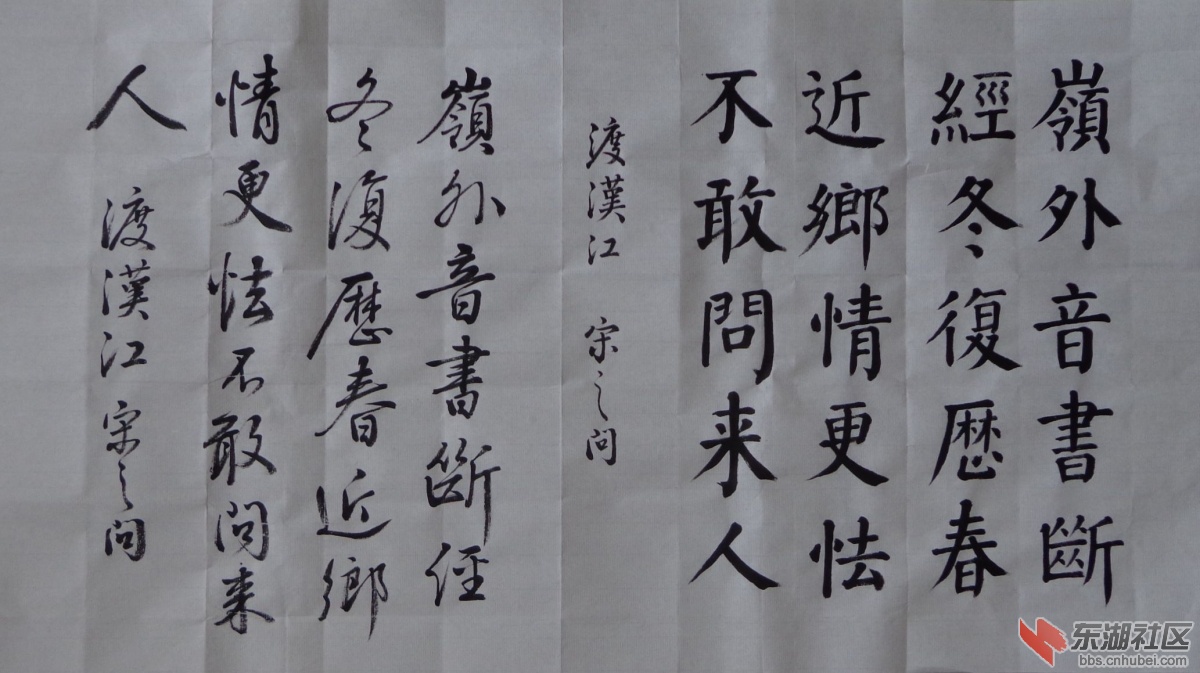 嶺外音書斷
經冬復歷春
近鄉情更怯
不敢問来人
渡漢江 宋之问
嶺外音書斷經
冬復歷春近鄉
情更怯不敢问来
人 渡漢江 宋之问
东湖社区
bbs.cnhubei.com